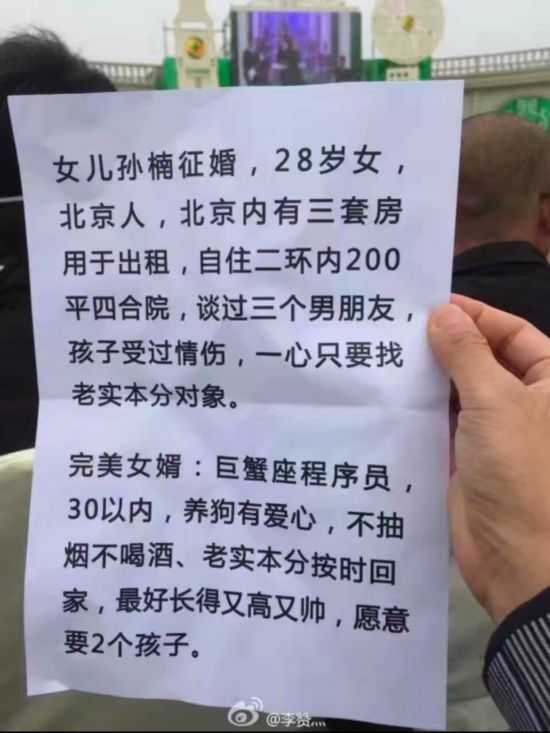 女儿孙楠征婚，28岁女，
北京人，北京内有三套房
用于出租，自住二环内200
平四合院，谈过三个男朋友，
孩子受过情伤，一心只要找
老实本分对象。
完美女婿：巨蟹座程序员，
30以内，养狗有爱心，不抽
烟不喝酒、老实本分按时回
家，最好长得又高又帅，愿意
要2个孩子。
@李赞灬